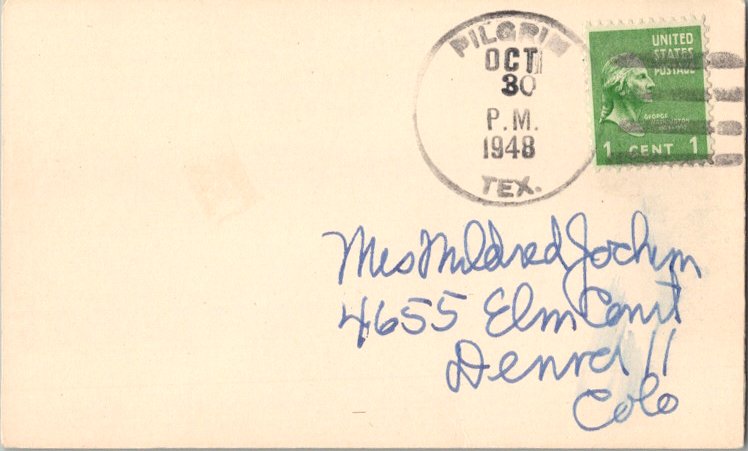 PILGRIM
OCT
30
P.M.
1948
TEX.
UNITED
STATES
POSTAGE
GEORGE
1 CENT 1
Mrs Mildred Jochim
4655 Elm Court
Denver 11
Colo